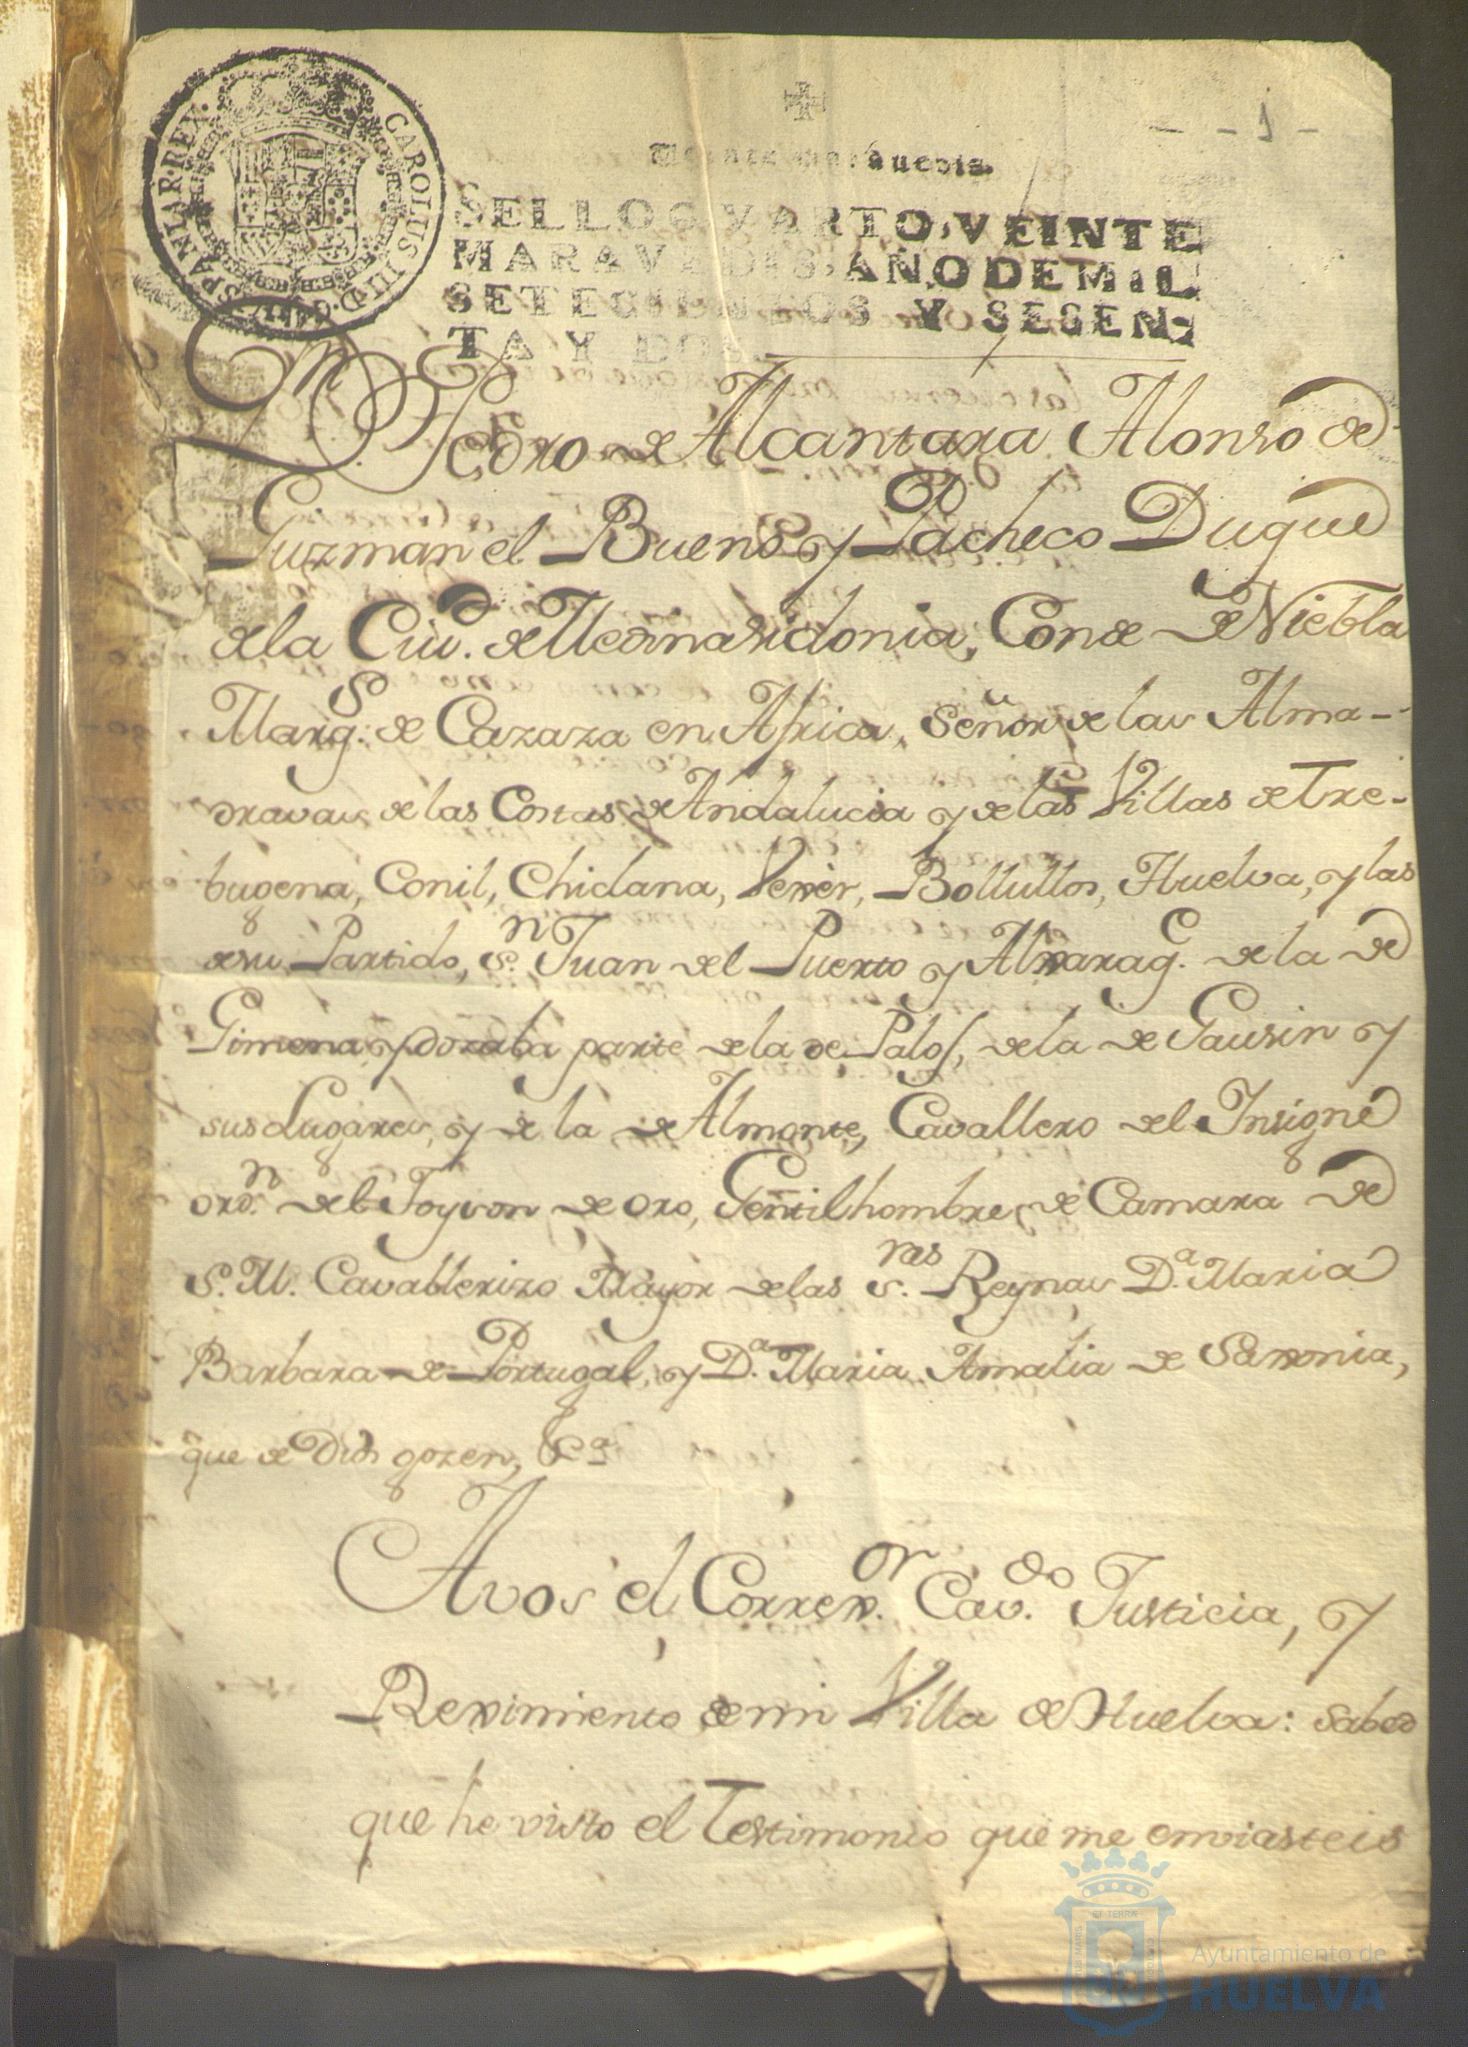 CAROLUS III D. G. HISPANIAR. REX.
- - 1 -
Veinte maravedis.
SELLO QVARTO, VEINTE
MARAVEDIS, AÑO DE MIL
SETECIENTOS Y SESEN-
TA Y DOS.
Dn. Pedro de Alcantara Alonso de
Guzman el Bueno y Pacheco Duque
de la Ciud. de Medinasidonia, Conde de Niebla
Marqs. de Cazaza en Africa, Señor de las Alma-
dravas de las Costas de Andalucia y de las Villas de Tre-
bugena, Conil, Chiclana, Vexèr, Bollullos, Huelva, y las
de su Partido, Sn. Juan del Puerto y Alxaraqe. de la de
Gimena, y parte de la de Palos, de la de Gausin y
sus Lugares, y de la de Almonte, Cavallero del Insigne
ordn. del Toyson de oro, Gentilhombre de Camara de
S. M. Cavallerizo Mayor de las Sras. Reynas Da. Maria
Barbara de Portugal, y Da. Maria Amalia de Saxonia,
que de Dios gozen, &a
A vos el Correxor. Cavdo. Justicia, y
Reximiento de mi Villa de Huelva: sabed
que he visto el Testimonio que me enviasteis
Ayuntamiento de
HUELVA